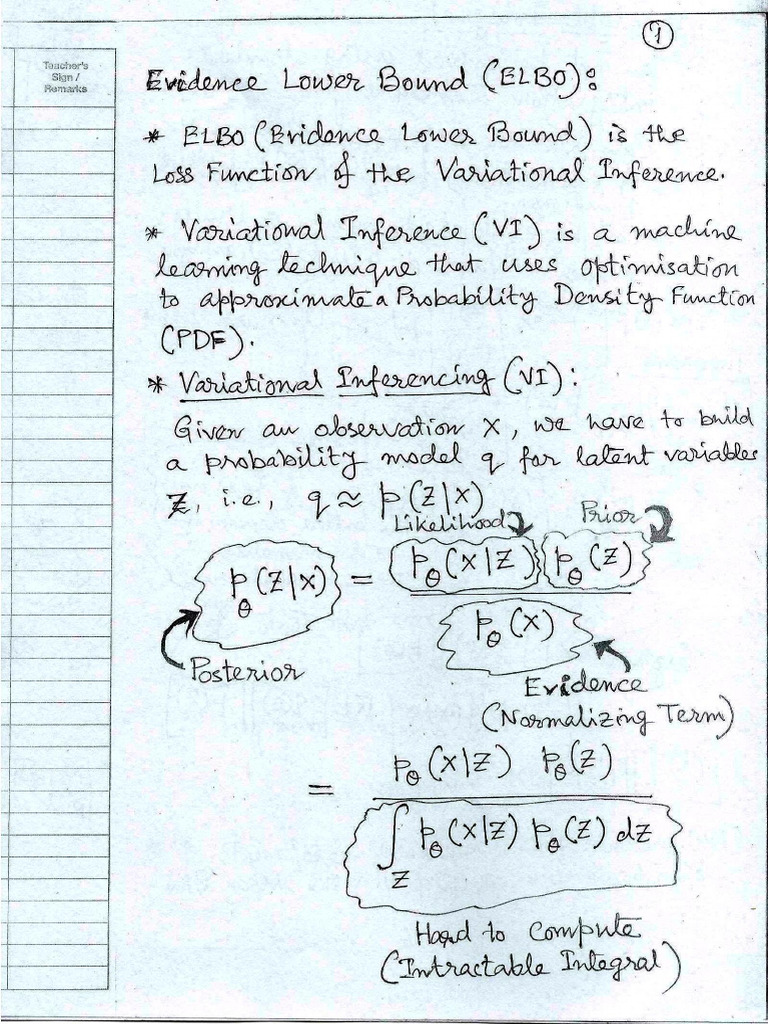 1
Teacher's
Sign /
Remarks
Evidence Lower Bound (ELBO):
* ELBO (Evidence Lower Bound) is the
Loss Function of the Variational Inference.
* Variational Inference (VI) is a machine
learning technique that uses optimisation
to approximate a Probability Density Function
(PDF).
* Variational Inferencing (VI):
Given an observation X, we have to build
a probability model q for latent variables
Z, i.e., q ≈ p(Z|X)
Likelihood Prior
p_θ(Z|X) = p_θ(X|Z) p_θ(Z)
p_θ(X)
Posterior
Evidence
(Normalizing Term)
= p_θ(X|Z) p_θ(Z)
∫_Z p_θ(X|Z) p_θ(Z) dZ
Hard to compute
(Intractable Integral)